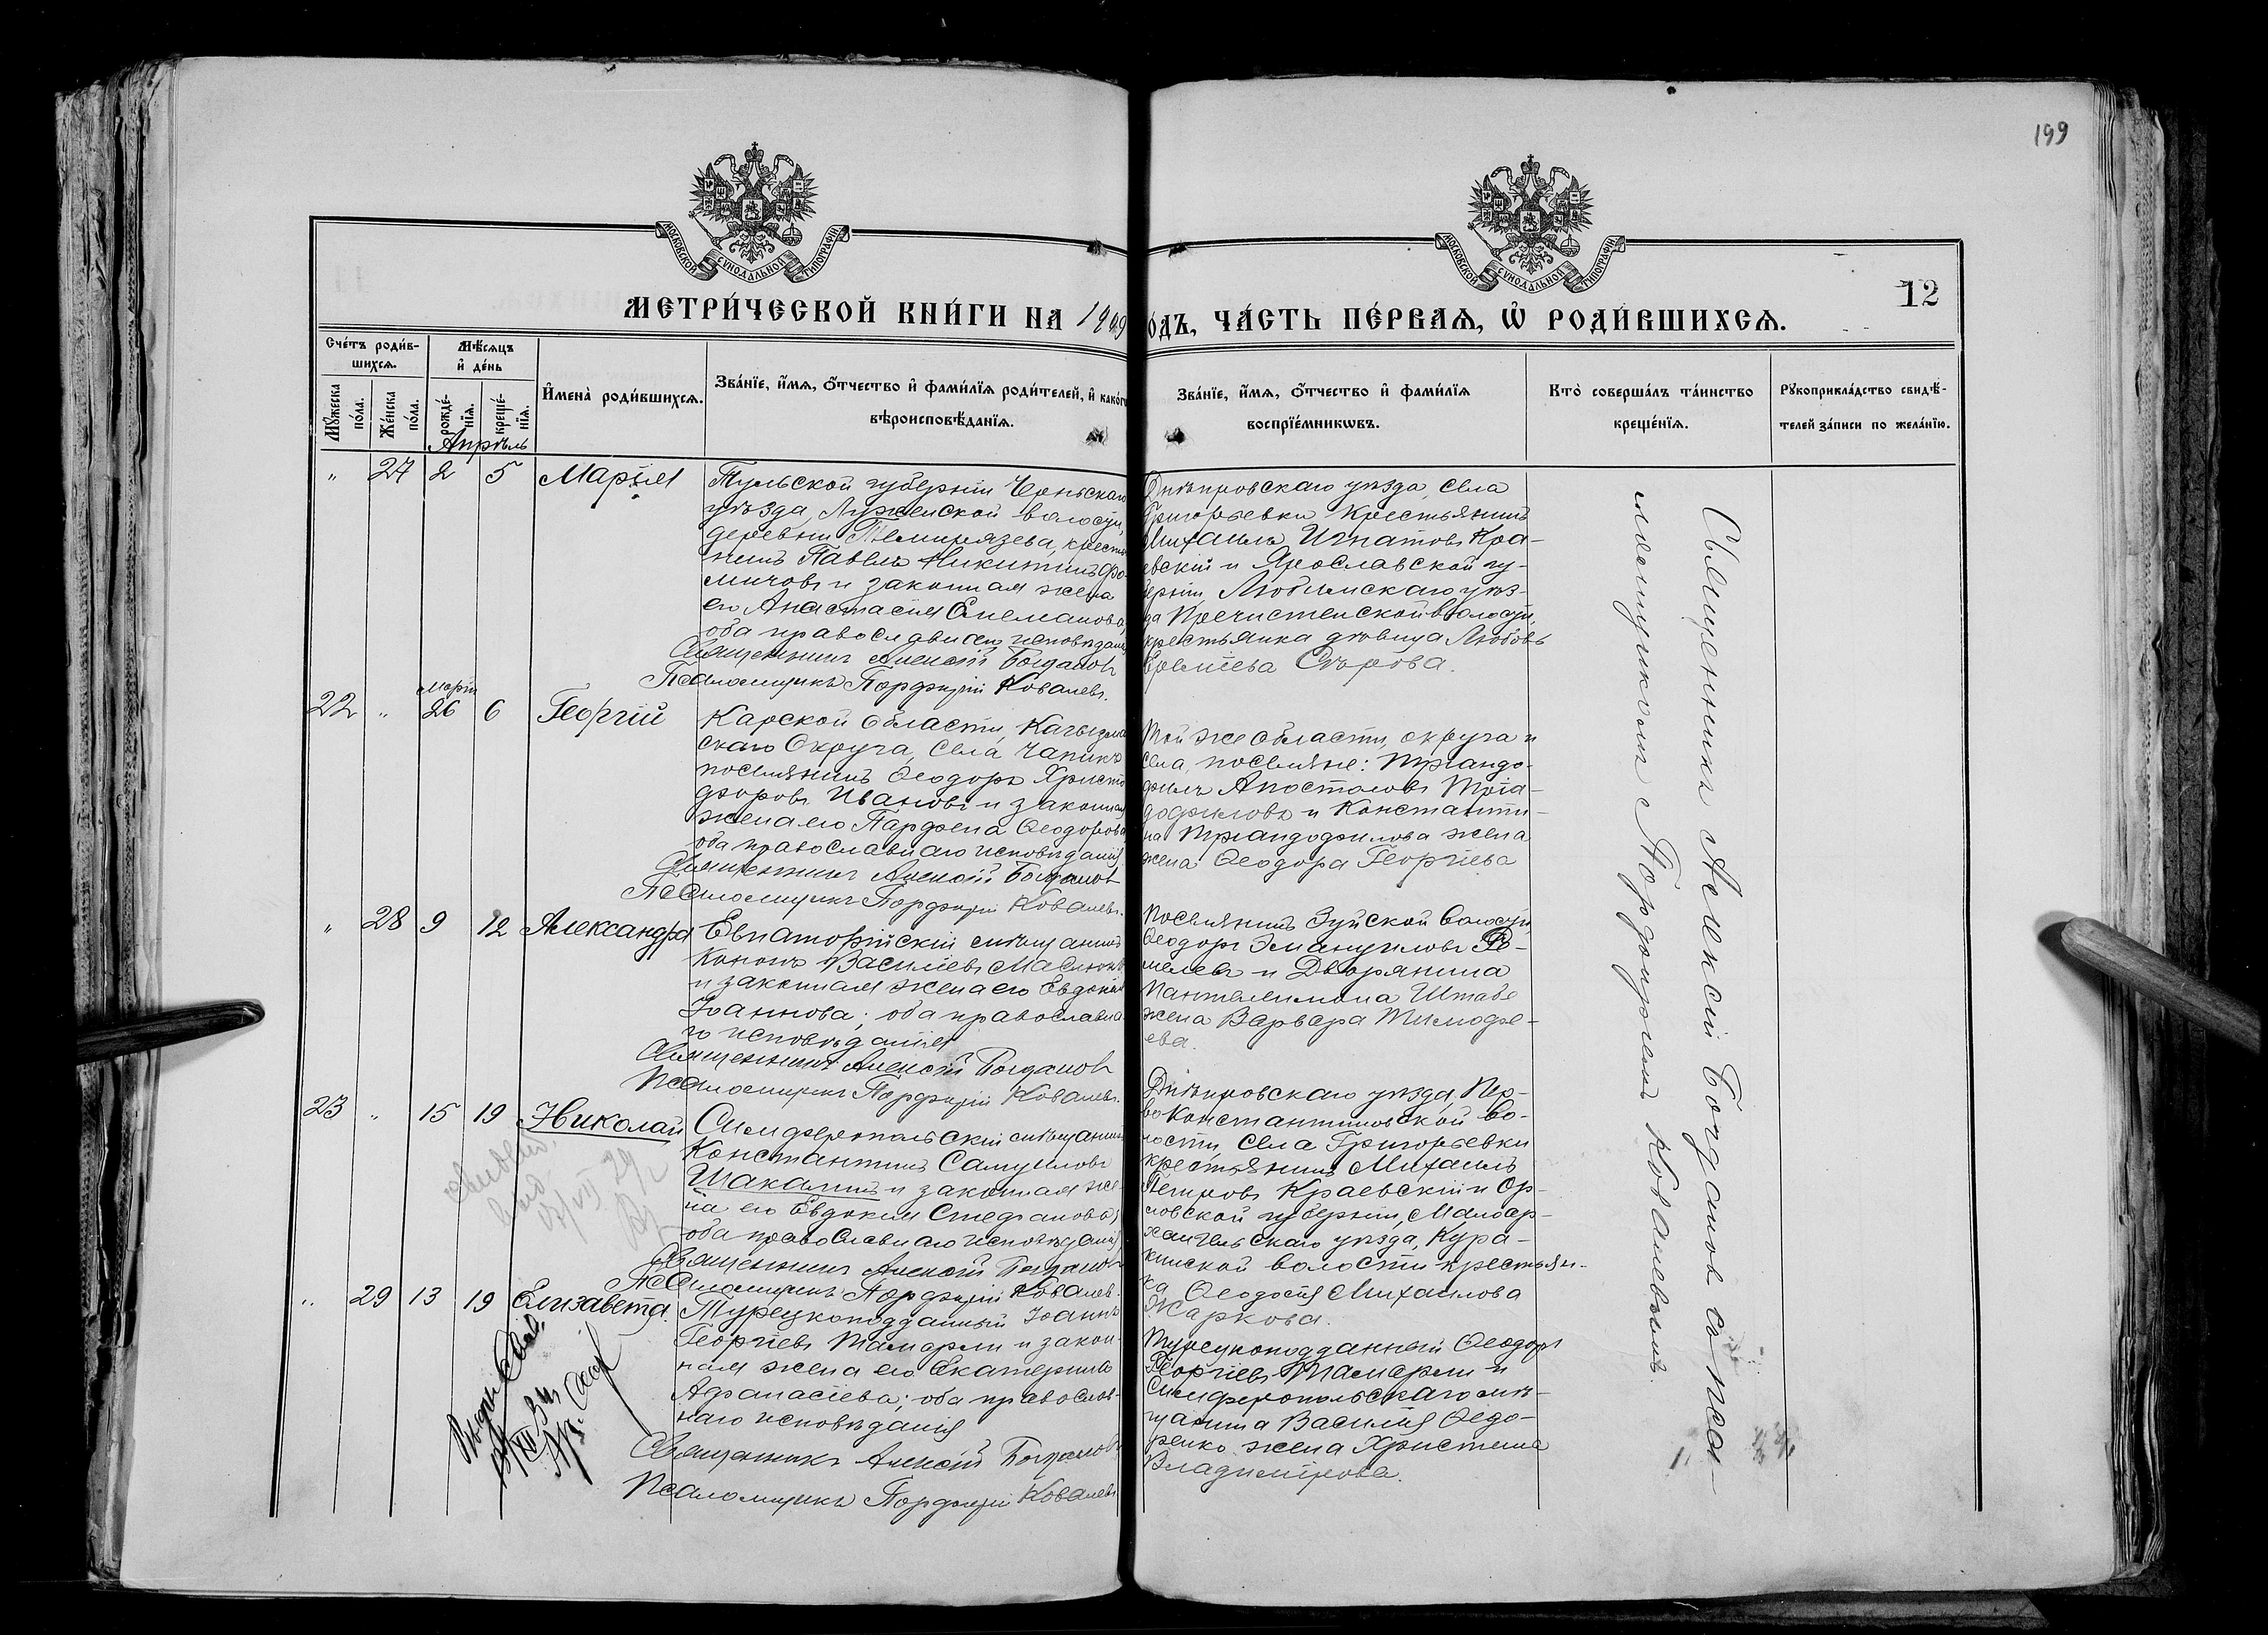 199
МОСКОВСКОЙ СѴНОДАЛЬНОЙ ТИПОГРАФІИ
МОСКОВСКОЙ СѴНОДАЛЬНОЙ ТИПОГРАФІИ
12
МЕТРИ́ЧЕСКОЙ КНИ́ГИ НА 1909
ОДЪ, ЧА́СТЬ ПЕ́РВАѦ, Ѡ҆ РОДИ́ВШИХСѦ.
Сче́тъ роди́в-
шихсѧ.
Мѣ́сѧцъ
и҆ де́нь
Мꙋ́жеска по́ла.
Же́нска по́ла.
рожде́-нїѧ.
креще́-нїѧ.
И҆мена̀ роди́вшихсѧ.
Зва́нїе, и҆́мѧ, ѻ҆́тчество и҆ фами́лїѧ роди́телей, и҆ како́гѡ
вѣроисповѣ́данїѧ.
Зва́нїе, и҆́мѧ, ѻ҆́тчество и҆ фами́лїѧ
воспрїе́мникѡвъ.
Кто̀ соверша́лъ та́инство
креще́нїѧ.
Рꙋкоприкла́дство свидѣ́-
телей за́писи по жела́нїю.
Апрѣль
" 27 2 5 Марія
Тульской губерніи Чернскаго
уѣзда, волости,
деревни Темирязева, крестья
нинъ Павелъ Никитинъ Фо-
мичовъ и законная жена
его Анастасія
оба православнаго исповѣданія
Священникъ Алексій Богданов
Псаломщикъ Порфирій Ковалевъ.
Днѣпровскаго уѣзда, села
Григорьевки крестьянинъ
Михаилъ Игнатовъ Кра-
евскій и Ярославской гу-
берніи, Любимскаго уѣз-
да Пречистенской волости
крестьянка дѣвица Любовь
Сѣрова.
22 " Марта 26 6 Георгій
Карской области, Кагызман
скаго Округа, села Чапикъ
поселянинъ Ѳеодоръ Христо
форовъ Ивановъ и законная
жена его Парфена Ѳеодорова,
оба православнаго исповѣданія
Священникъ Алексій Богданов
Псаломщикъ Порфирій Ковалевъ.
Той же области, округа и
села, поселяне: Тріандо-
филъ Апостоловъ Тріа-
дофиловъ и Константи-
на Тріандофилова жена
жена Ѳеодора Георгіева
" 28 9 12 Александра
Евпаторійскій мѣщанинъ
Кононъ Васильевъ
и законная жена его Евдокія
Іоаннова; оба православна
го исповѣданія
Священникъ Алексій Богданов
Псаломщикъ Порфирій Ковалевъ.
Поселянинъ Зуйской волости
Ѳеодоръ Эмануиловъ
и Дворянина
Пантелеимона Штабе
жена Варвара Тимофе-
ева.
23 " 15 19 Николай
Симферопольскій мѣщанинъ
Константинъ Самуиловъ
Шакалинъ и законная же-
на его Евдокія Стефанова;
оба православнаго исповѣданія
Священникъ Алексій Богданов
Псаломщикъ Порфирій Ковалев.
Днѣпровскаго уѣзда, Пер-
во Константиновской во-
лости, села Григорьевки
крестьянинъ Михаилъ
Петровъ Краевскій и Ор-
ловской губерніи, Малоар-
хангельскаго уѣзда, Кура-
кинской волости крестьян-
ка Ѳеодосія Михаилова
Жаркова.
" 29 13 19 Елизавета.
Турецкоподданный Іоаннъ
Георгіевъ Тамарли и закон-
ная жена его Екатерина
Афанасіева; оба православ-
наго исповѣданія
Священникъ Алексій Богданов
Псаломщикъ Порфирій Ковалевъ
Турецкоподданный Ѳеодоръ
Георгіевъ Тамарли и
Симферопольскаго мѣ-
щанина Василія Ѳедо-
ренко жена Христина
Владимірова.
Священникъ Алексій Богданов съ псал-
ломщикомъ Порфиріемъ Ковалевымъ.